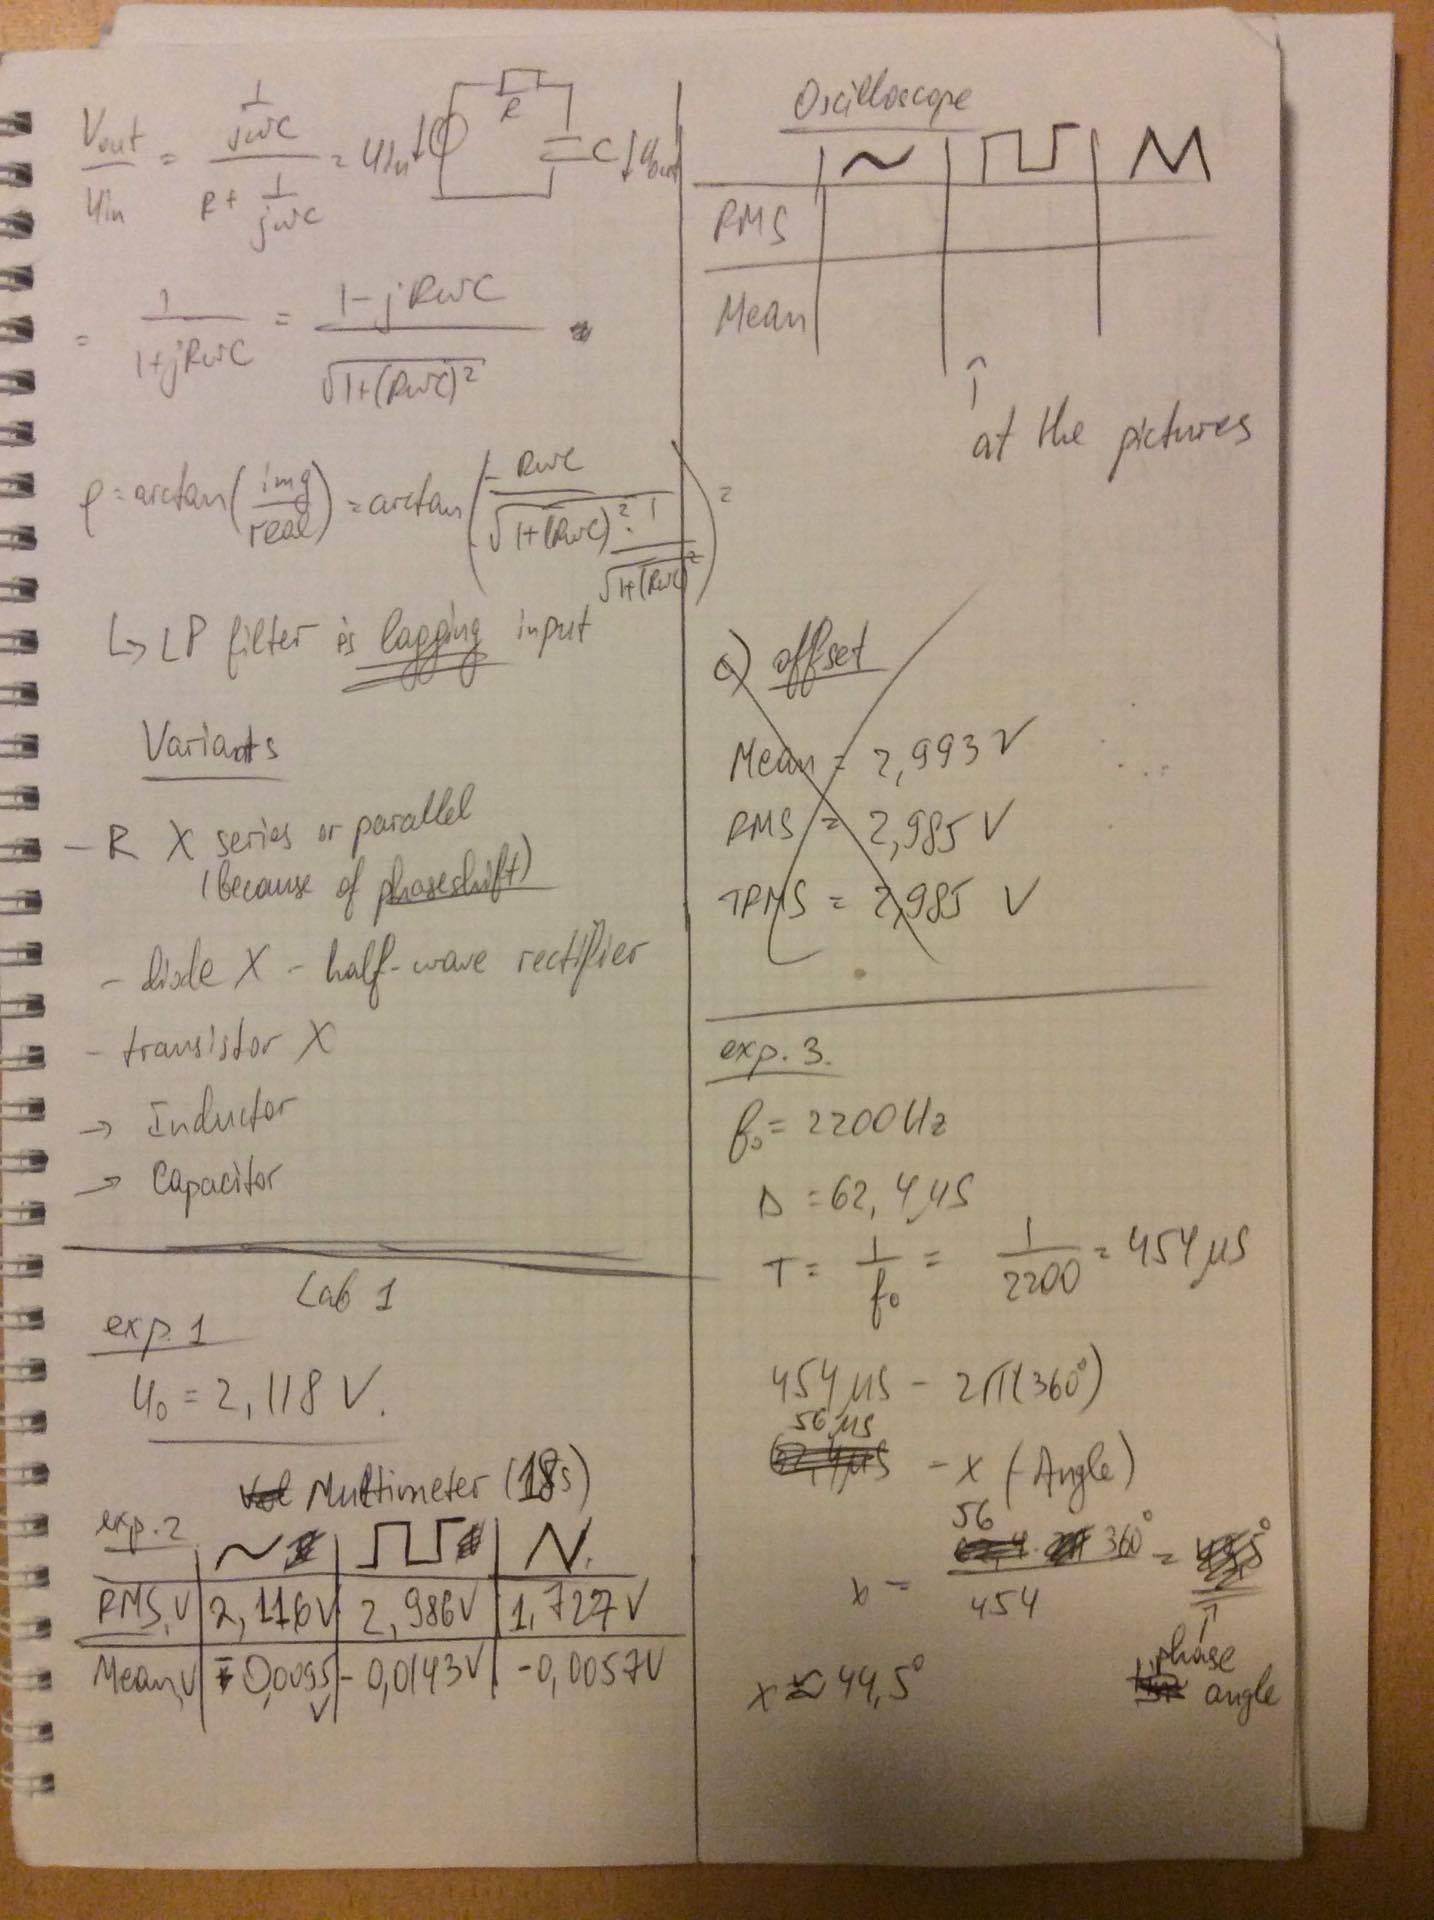 Vout / Uin = (1/jωC) / (R + 1/jωC) = Uin R C Uout
= 1 / (1+jRωC) = (1-jRωC) / √(1+(RωC)²)
φ = arctan(img/real) = arctan(-RωC / (√(1+(RωC)²) · 1/√(1+(RωC)²)))
↳ LP filter is lagging input
Variants
- R X series or parallel
(because of phaseshift)
- diode X - half-wave rectifier
- transistor X
→ Inductor
→ Capacitor
Lab 1
exp. 1
U₀ = 2,118 V.
Multimeter (18s)
exp. 2
RMS, V 2,116V 2,986V 1,727V
Mean, V -0,0095 V -0,0143V -0,0057V
Oscilloscope
RMS
Mean
↑
at the pictures
c) offset
Mean = 2,993 V
RMS = 2,985 V
TRMS = 2,985 V
exp. 3.
f₀ = 2200 Hz
Δ = 62,4 μs
T = 1/f₀ = 1/2200 = 454 μs
454 μs - 2π(360°)
56 μs
- x (-Angle)
x = 56 360° / 454 =
↑
phase
angle
x ≈ 44,5°